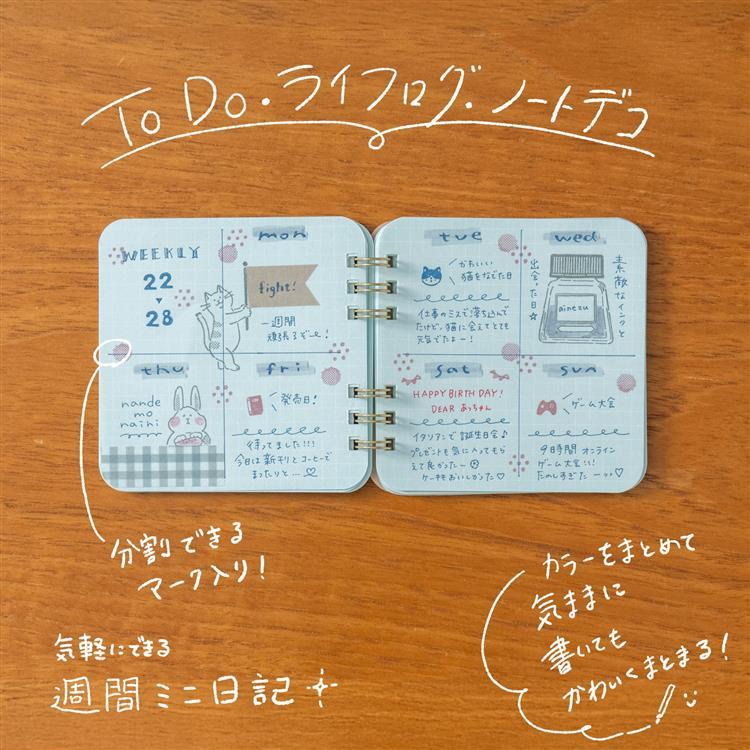 To Do・ライフログ・ノートデコ
WEEKLY
22
28
mon
fight!
一週間
頑張るぞー!
thu
nande
mo
naihi
fri
発売日!
待ってました!!!
今日は新刊とコーヒーで
まったりと…♡
tue
かわいい
猫をなでた日
仕事のミスで落ち込んで
たけど、猫に会えてとても
元気でたよー!
wed
素敵なインクと
出会った日☆
ainezu
sat
HAPPY BIRTHDAY!
DEAR あっちゃん
イタリアンで誕生日会♪
プレゼントも気に入ってもら
えて良かったー
ケーキもおいしかった♡
sun
ゲーム大会
9時間 オンライン
ゲーム大会!!!
たのしすぎたーッッ♡
分割できる
マーク入り!
気軽にできる
週間ミニ日記
カラーをまとめて
気ままに
書いても
かわいくまとまる!